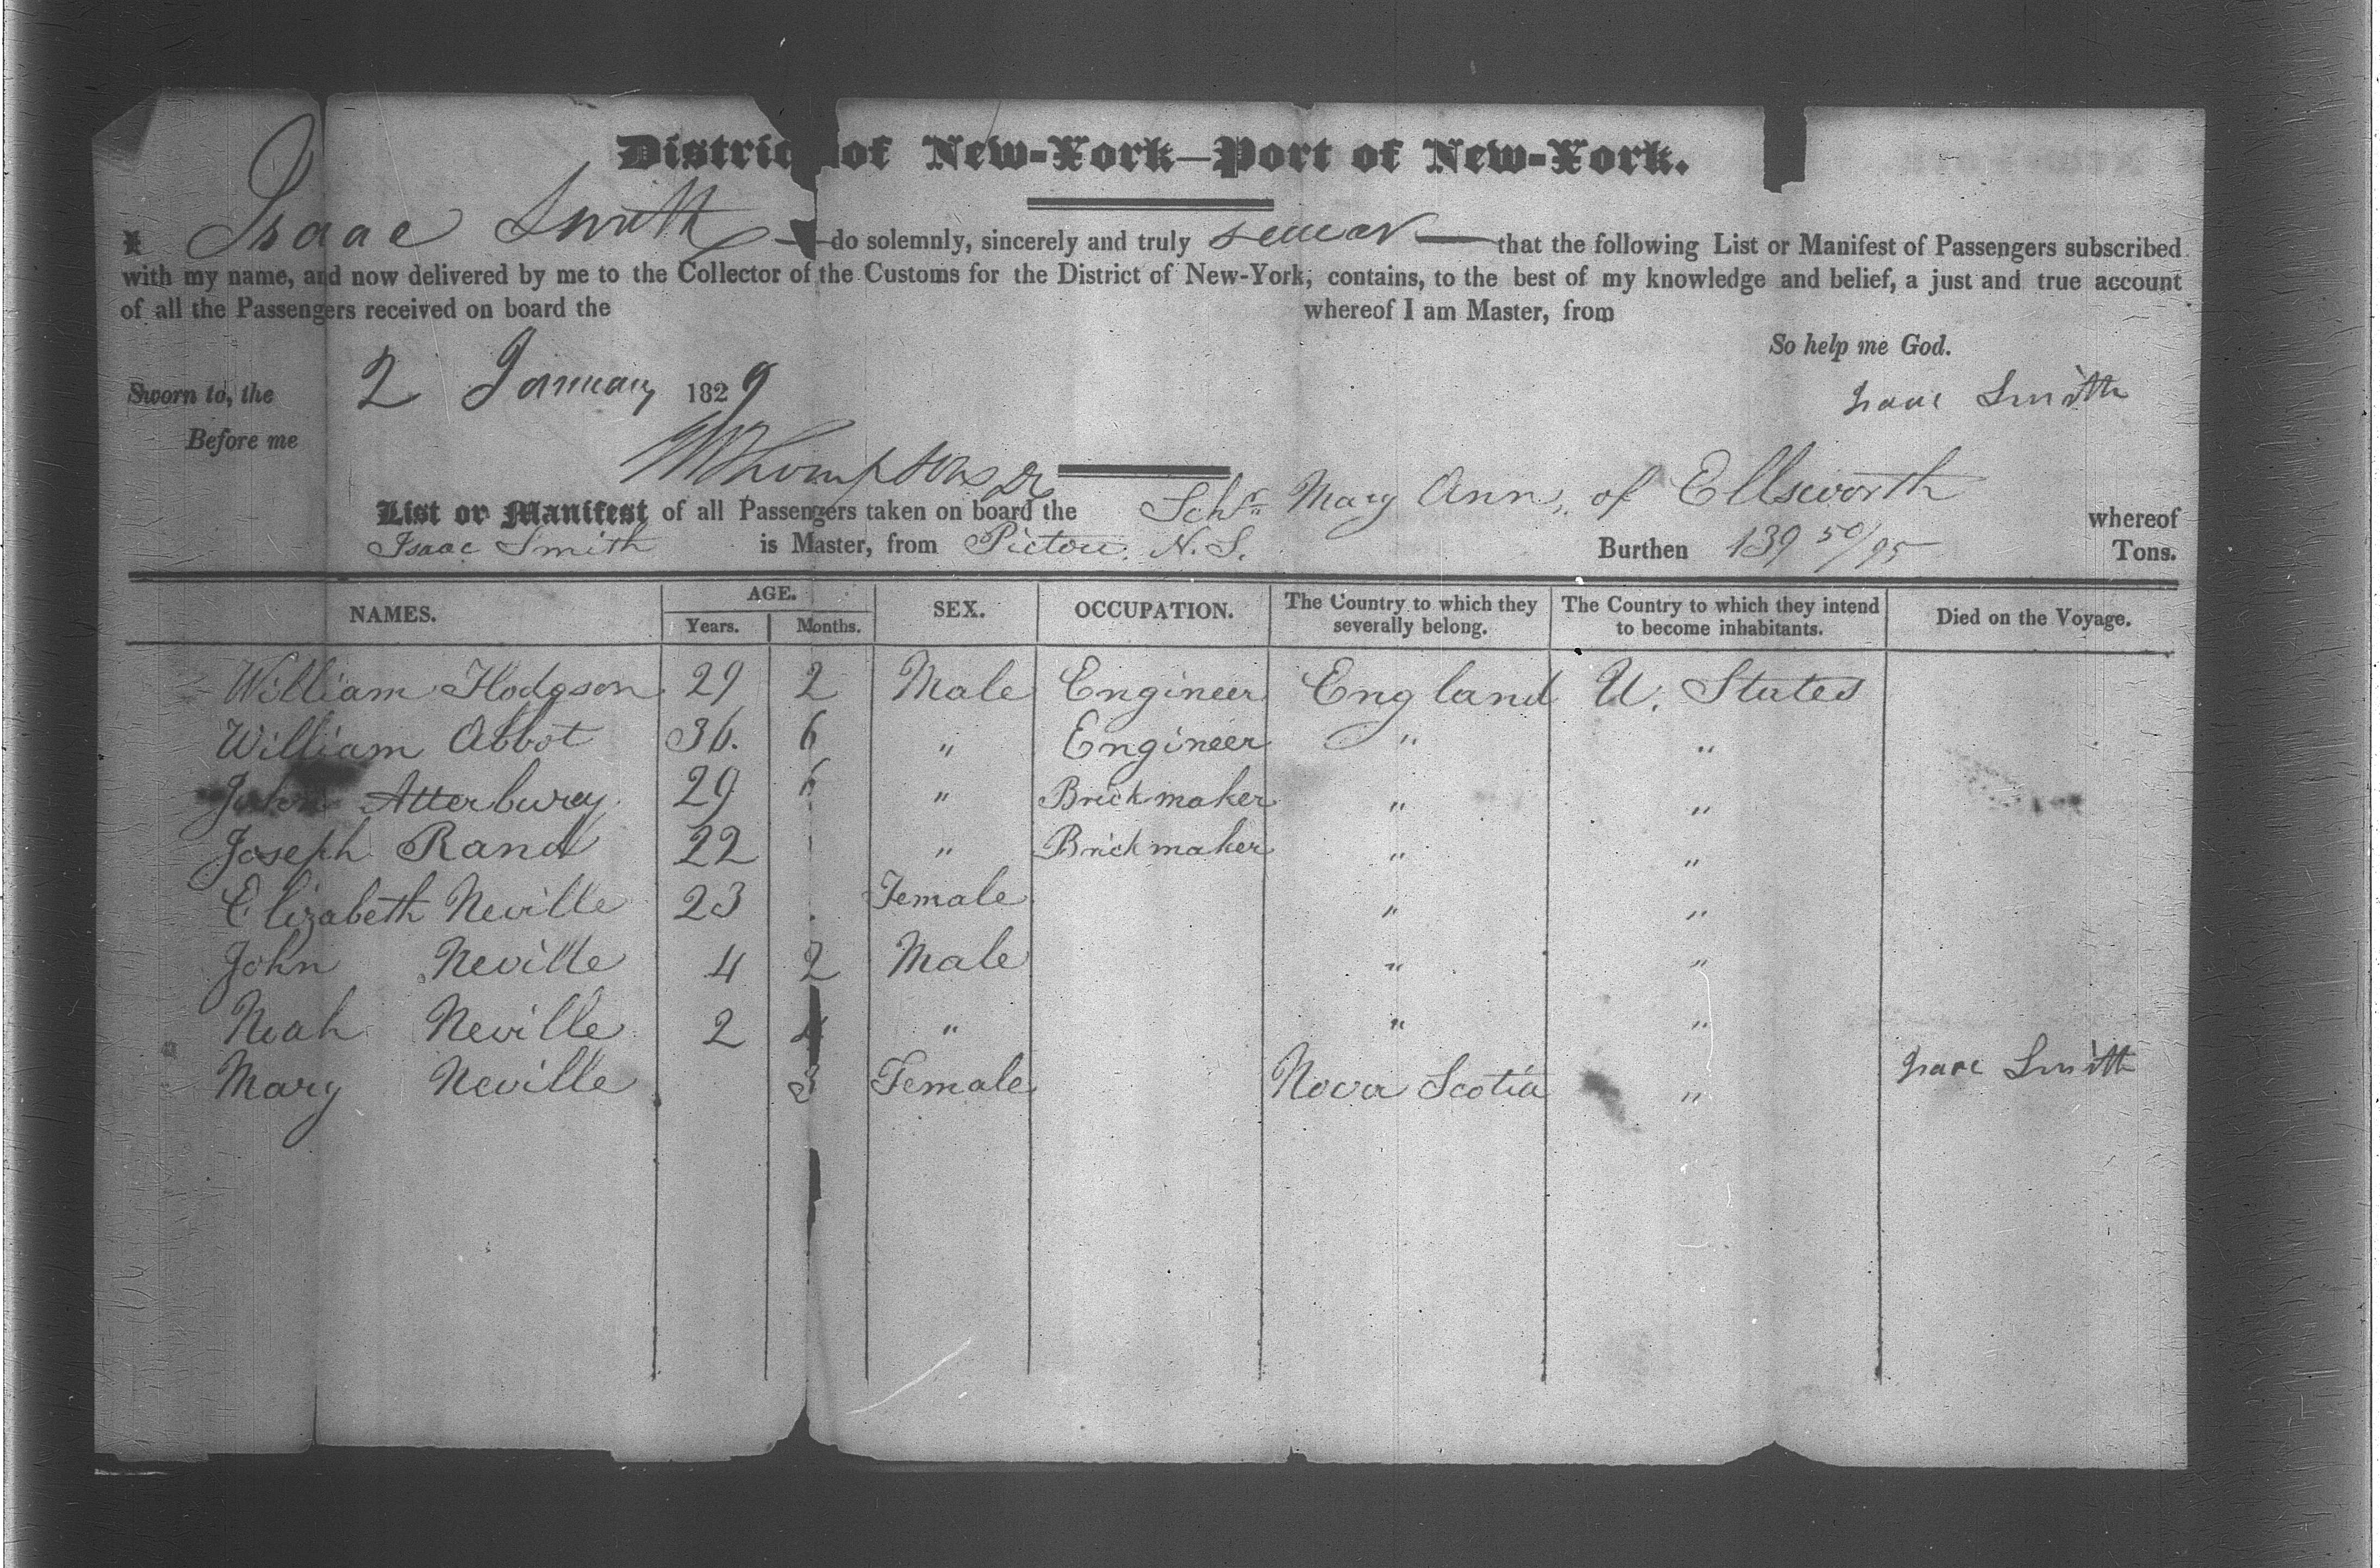 District of New-York—Port of New-York.
I Isaac Smith do solemnly, sincerely and truly swear that the following List or Manifest of Passengers subscribed
with my name, and now delivered by me to the Collector of the Customs for the District of New-York, contains, to the best of my knowledge and belief, a just and true account
of all the Passengers received on board the whereof I am Master, from
So help me God.
Sworn to, the 2 January 1829 Isaac Smith
Before me
Thompson
List or Manifest of all Passengers taken on board the Schr Mary Ann, of Ellsworth whereof
Isaac Smith is Master, from Pictou. N.S. Burthen 139 50/95 Tons.
NAMES. AGE. Years. Months. SEX. OCCUPATION. The Country to which they severally belong. The Country to which they intend to become inhabitants. Died on the Voyage.
William Hodgson 29 2 Male Engineer England U. States
William Abbot 36. 6 " Engineer " "
John Atterburey 29 6 " Brickmaker " "
Joseph Rand 22 " Brickmaker " "
Elizabeth Neville 23 Female " "
John Neville 4 2 Male " "
Noah Neville 2 4 " " "
Mary Neville 3 Female Nova Scotia "
Isaac Smith